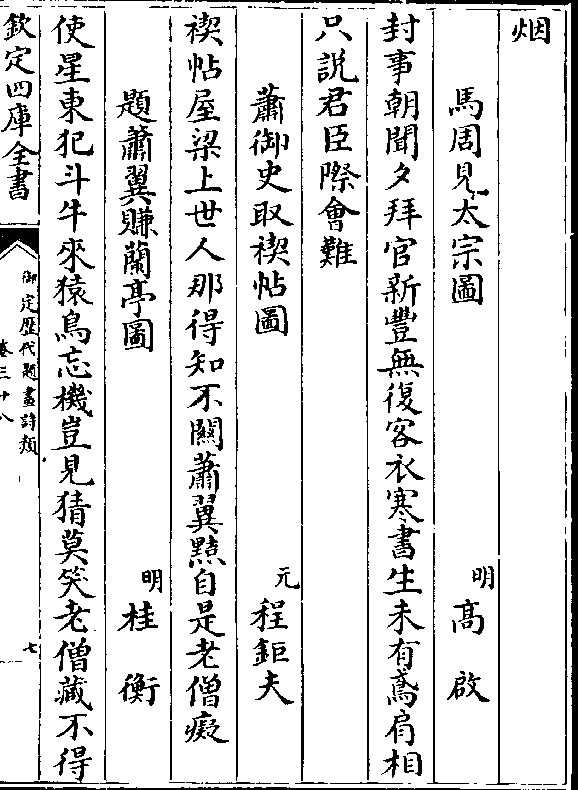 烟
馬周見太宗圖
明 高啟
封事朝聞夕拜官新豐無復客衣寒書生未有鳶肩相
只說君臣際會難
蕭御史取禊帖圖
元 程鉅夫
禊帖屋梁上世人那得知不關蕭翼黠自是老僧癡
題蕭翼賺蘭亭圖
明 桂衡
使星東犯斗牛來猿鳥忘機豈見猜莫笑老僧藏不得
欽定四庫全書
御定歷代題畫詩類
卷三十八
七